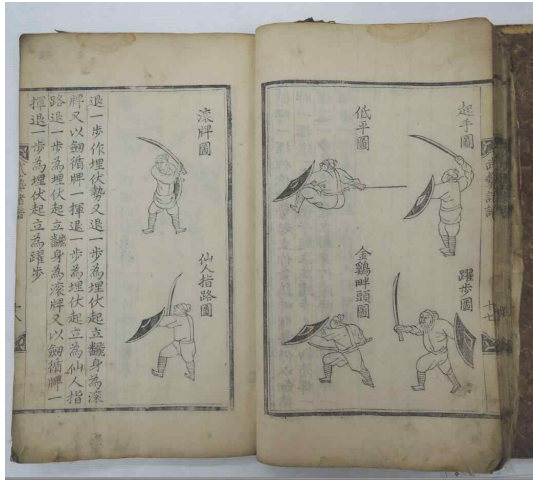 起手圖
躍步圖
低平圖
金鷄畔頭圖
十七
滾牌圖
仙人指路圖
退一步作埋伏勢又退一步為埋伏起立飜身為滾
牌又以劒循牌一揮退一步為埋伏起立為仙人指
路退一步為埋伏起立飜身為滾牌又以劒循牌一
揮退一步為埋伏起立為躍步
十八